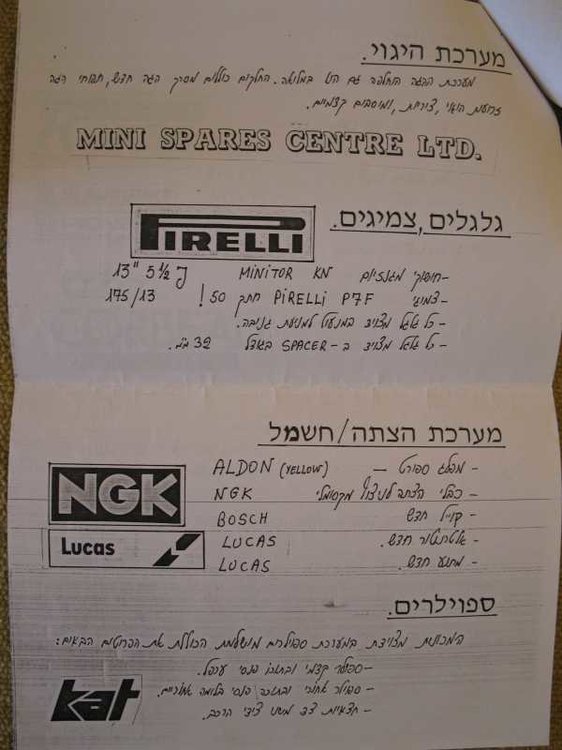 מערכת היגוי.
מערכת ההגה הוחלפה גם היא במלואה. החלקים כוללים מסרק הגה חדש, תפוחי הגה
זרועות היגוי, ציריות, ומיסבים קדמיים.
MINI SPARES CENTRE LTD.
גלגלים, צמיגים.
PIRELLI
-חישוקי מגנזיום MINITOR KN 13" 5½ J
-צמיגי PIRELLI P7F חתך 50! 175/13
-כל גלגל מצויד במנעול למניעת גניבה.
-כל גלגל מצויד ב-SPACER בגודל 32 מ"מ.
מערכת הצתה/חשמל
- מפלג ספורט — ALDON (YELLOW)
NGK
- כבלי הצתה לניצול מקסימלי NGK
- קויל חדש BOSCH
Lucas
- אלטרנטור חדש. LUCAS
- מתנע חדש. LUCAS
ספוילרים.
המכונית מצוידת במערכת ספוילרים מושלמת הכוללת את הפריטים הבאים:
-ספוילר קדמי ובתוכו פנסי ערפל.
kat
-ספוילר אחורי ובתוכו פנסי בלימה אחוריים.
- חצאיות צד משני צידי הרכב.